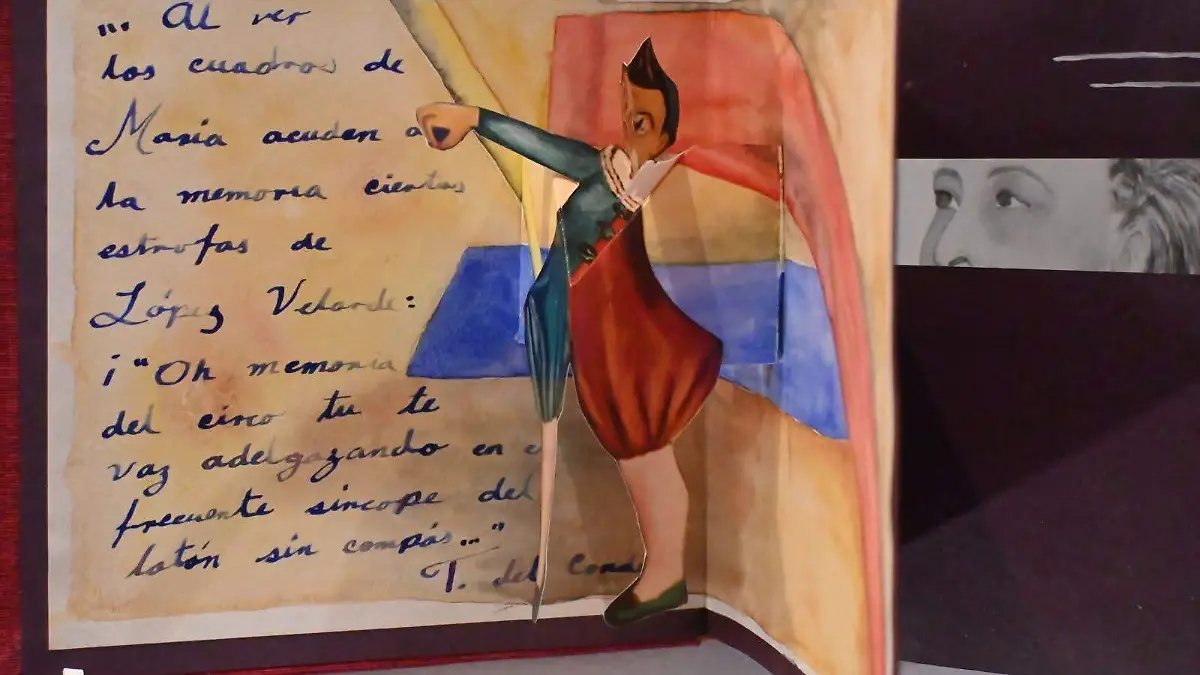 ... Al ver
los cuadros de
María acuden a
la memoria ciertas
estrofas de
López Velarde:
¡"Oh memoria
del circo tu te
vaz adelgazando en e
frecuente síncope del
latón sin compás..."
T. del Cond